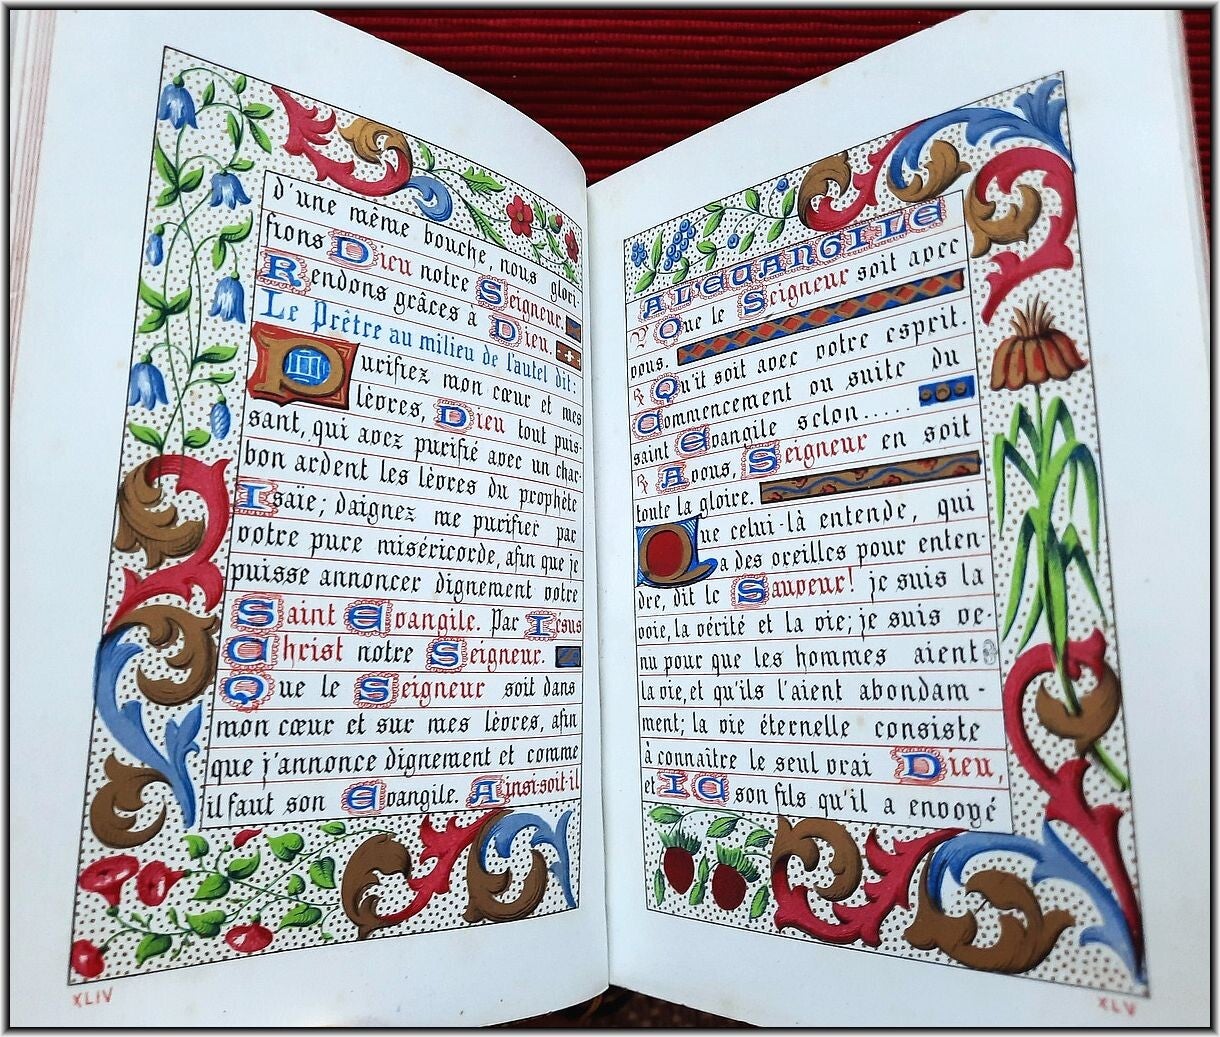 d'une même bouche, nous glori-
fions Dieu notre Seigneur.
Rendons grâces à Dieu.
Le Prêtre au milieu de l'autel dit:
Purifiez mon cœur et mes
lèvres, Dieu tout puis-
sant, qui avez purifié avec un char-
bon ardent les lèvres du prophète
Isaïe; daignez me purifier par
votre pure miséricorde, afin que je
puisse annoncer dignement votre
Saint Evangile. Par Jésus
Christ notre Seigneur.
Que le Seigneur soit dans
mon cœur et sur mes lèvres, afin
que j'annonce dignement et comme
il faut son Evangile. Ainsi-soit-il
XLIV
A L'EVANGILE
℣ Que le Seigneur soit avec
vous.
℟ Qu'it soit avec votre esprit.
Commencement ou suite du
saint Evangile selon.....
℟ A vous, Seigneur en soit
toute la gloire.
Que celui-là entende, qui
a des oreilles pour enten-
dre, dit le Sauveur! je suis la
voie, la vérité et la vie; je suis ve-
nu pour que les hommes aient
la vie, et qu'ils l'aient abondam-
ment; la vie éternelle consiste
à connaître le seul vrai Dieu,
et J C son fils qu'il a envoyé
XLV